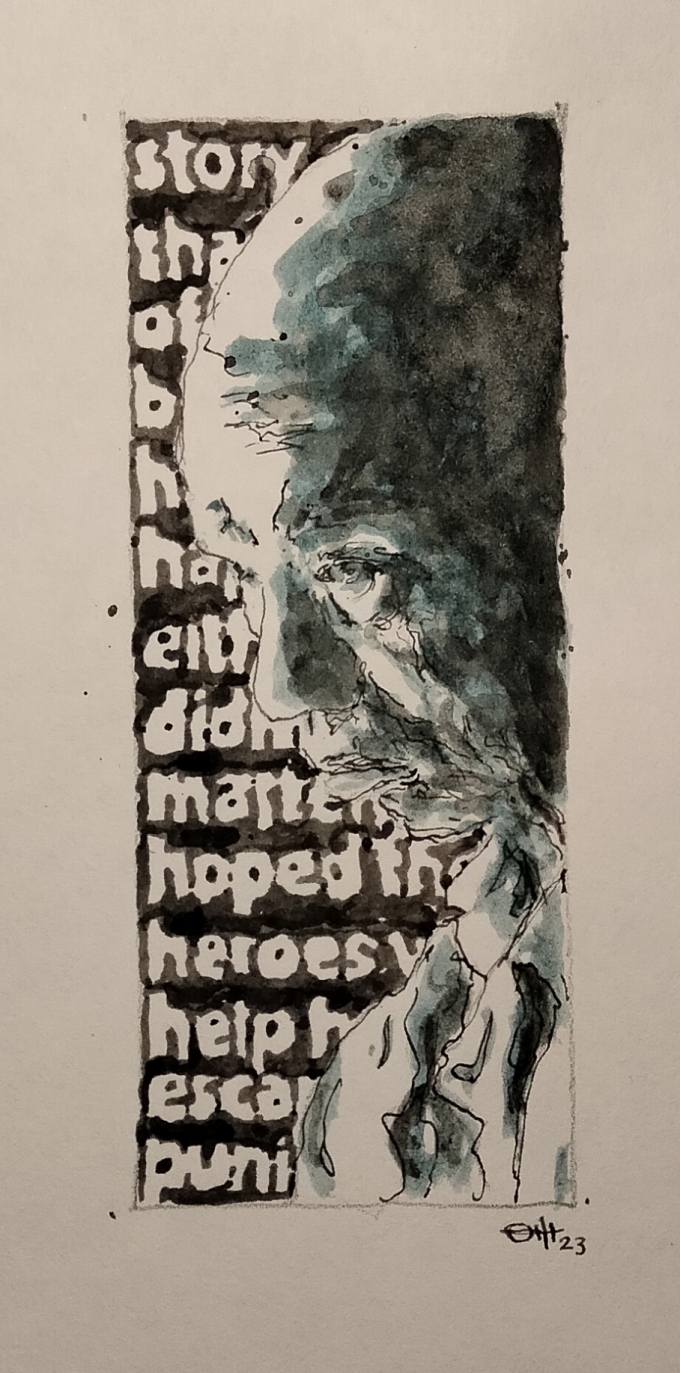 story
tha
of
b
h
hai
eith
didn
matter,
hoped the
heroes w
help h
escap
puni
23